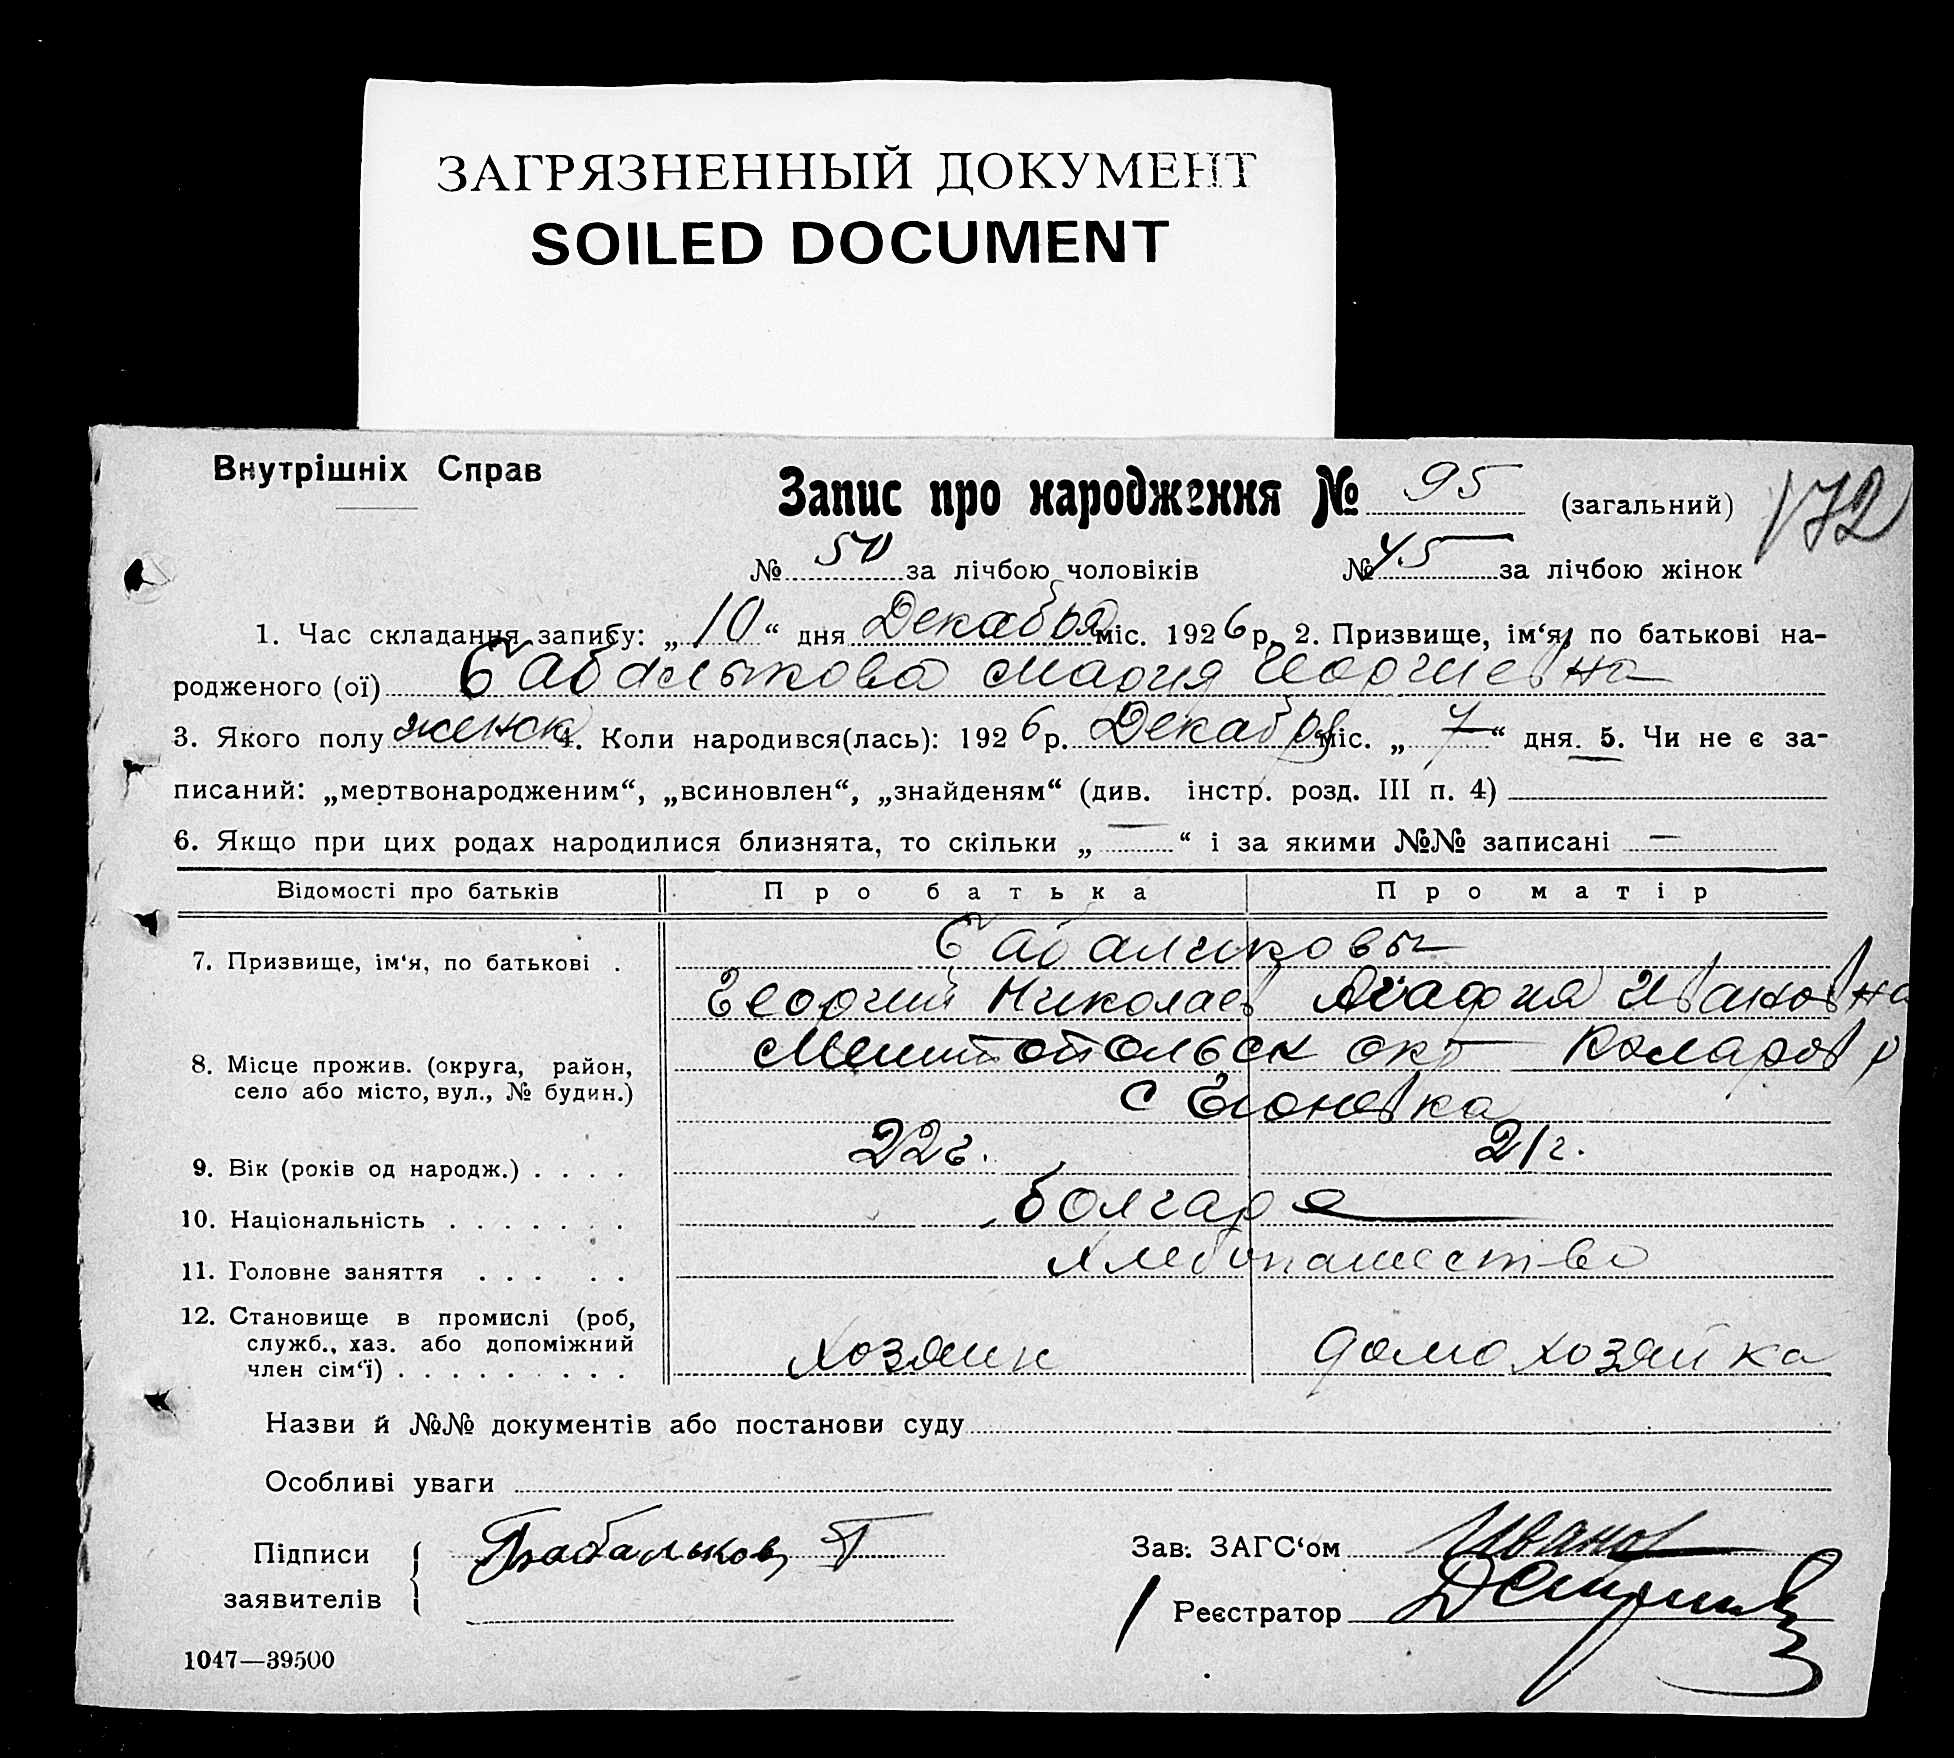 ЗАГРЯЗНЕННЫЙ ДОКУМЕНТ
SOILED DOCUMENT
Внутрішніх Справ
Запис про народження № 95 (загальний) 172
№ 50 за лічбою чоловіків № 45 за лічбою жінок
1. Час складання запису: „10“ дня Декабря міс. 1926 р. 2. Призвище, ім‘я, по батькові на-
родженого (ої) Бабалыкова Мария Георгиевна
3. Якого полу женск 4. Коли народився(лась): 1926 р. Декабря міс. „7“ дня. 5. Чи не є за-
писаний: „мертвонародженим“, „всиновлен“, „знайденям“ (див. інстр. розд. III п. 4)
6. Якщо при цих родах народилися близнята, то скільки „—“ і за якими №№ записані —
Відомості про батьків Про батька Про матір
Бабалыковы
7. Призвище, ім‘я, по батькові .
Георгий Николаев Агафия Ивановна
Мелитопольск окр Коларов р
8. Місце прожив. (округа, район,
село або місто, вул., № будин.)
с
9. Вік (років од народж.) . . . . 22г. 21г.
10. Національність . . . . . . . болгаре
11. Головне заняття . . . . . Хлебопашество
12. Становище в промислі (роб,
служб., хаз. або допоміжний
член сім‘ї) . . . . . . . . . хозяин домохозяйка
Назви й №№ документів або постанови суду
Особливі уваги
Підписи
заявителів
Бабалыков Г
Зав. ЗАГС‘ом Иванов
Реєстратор
1047—39500